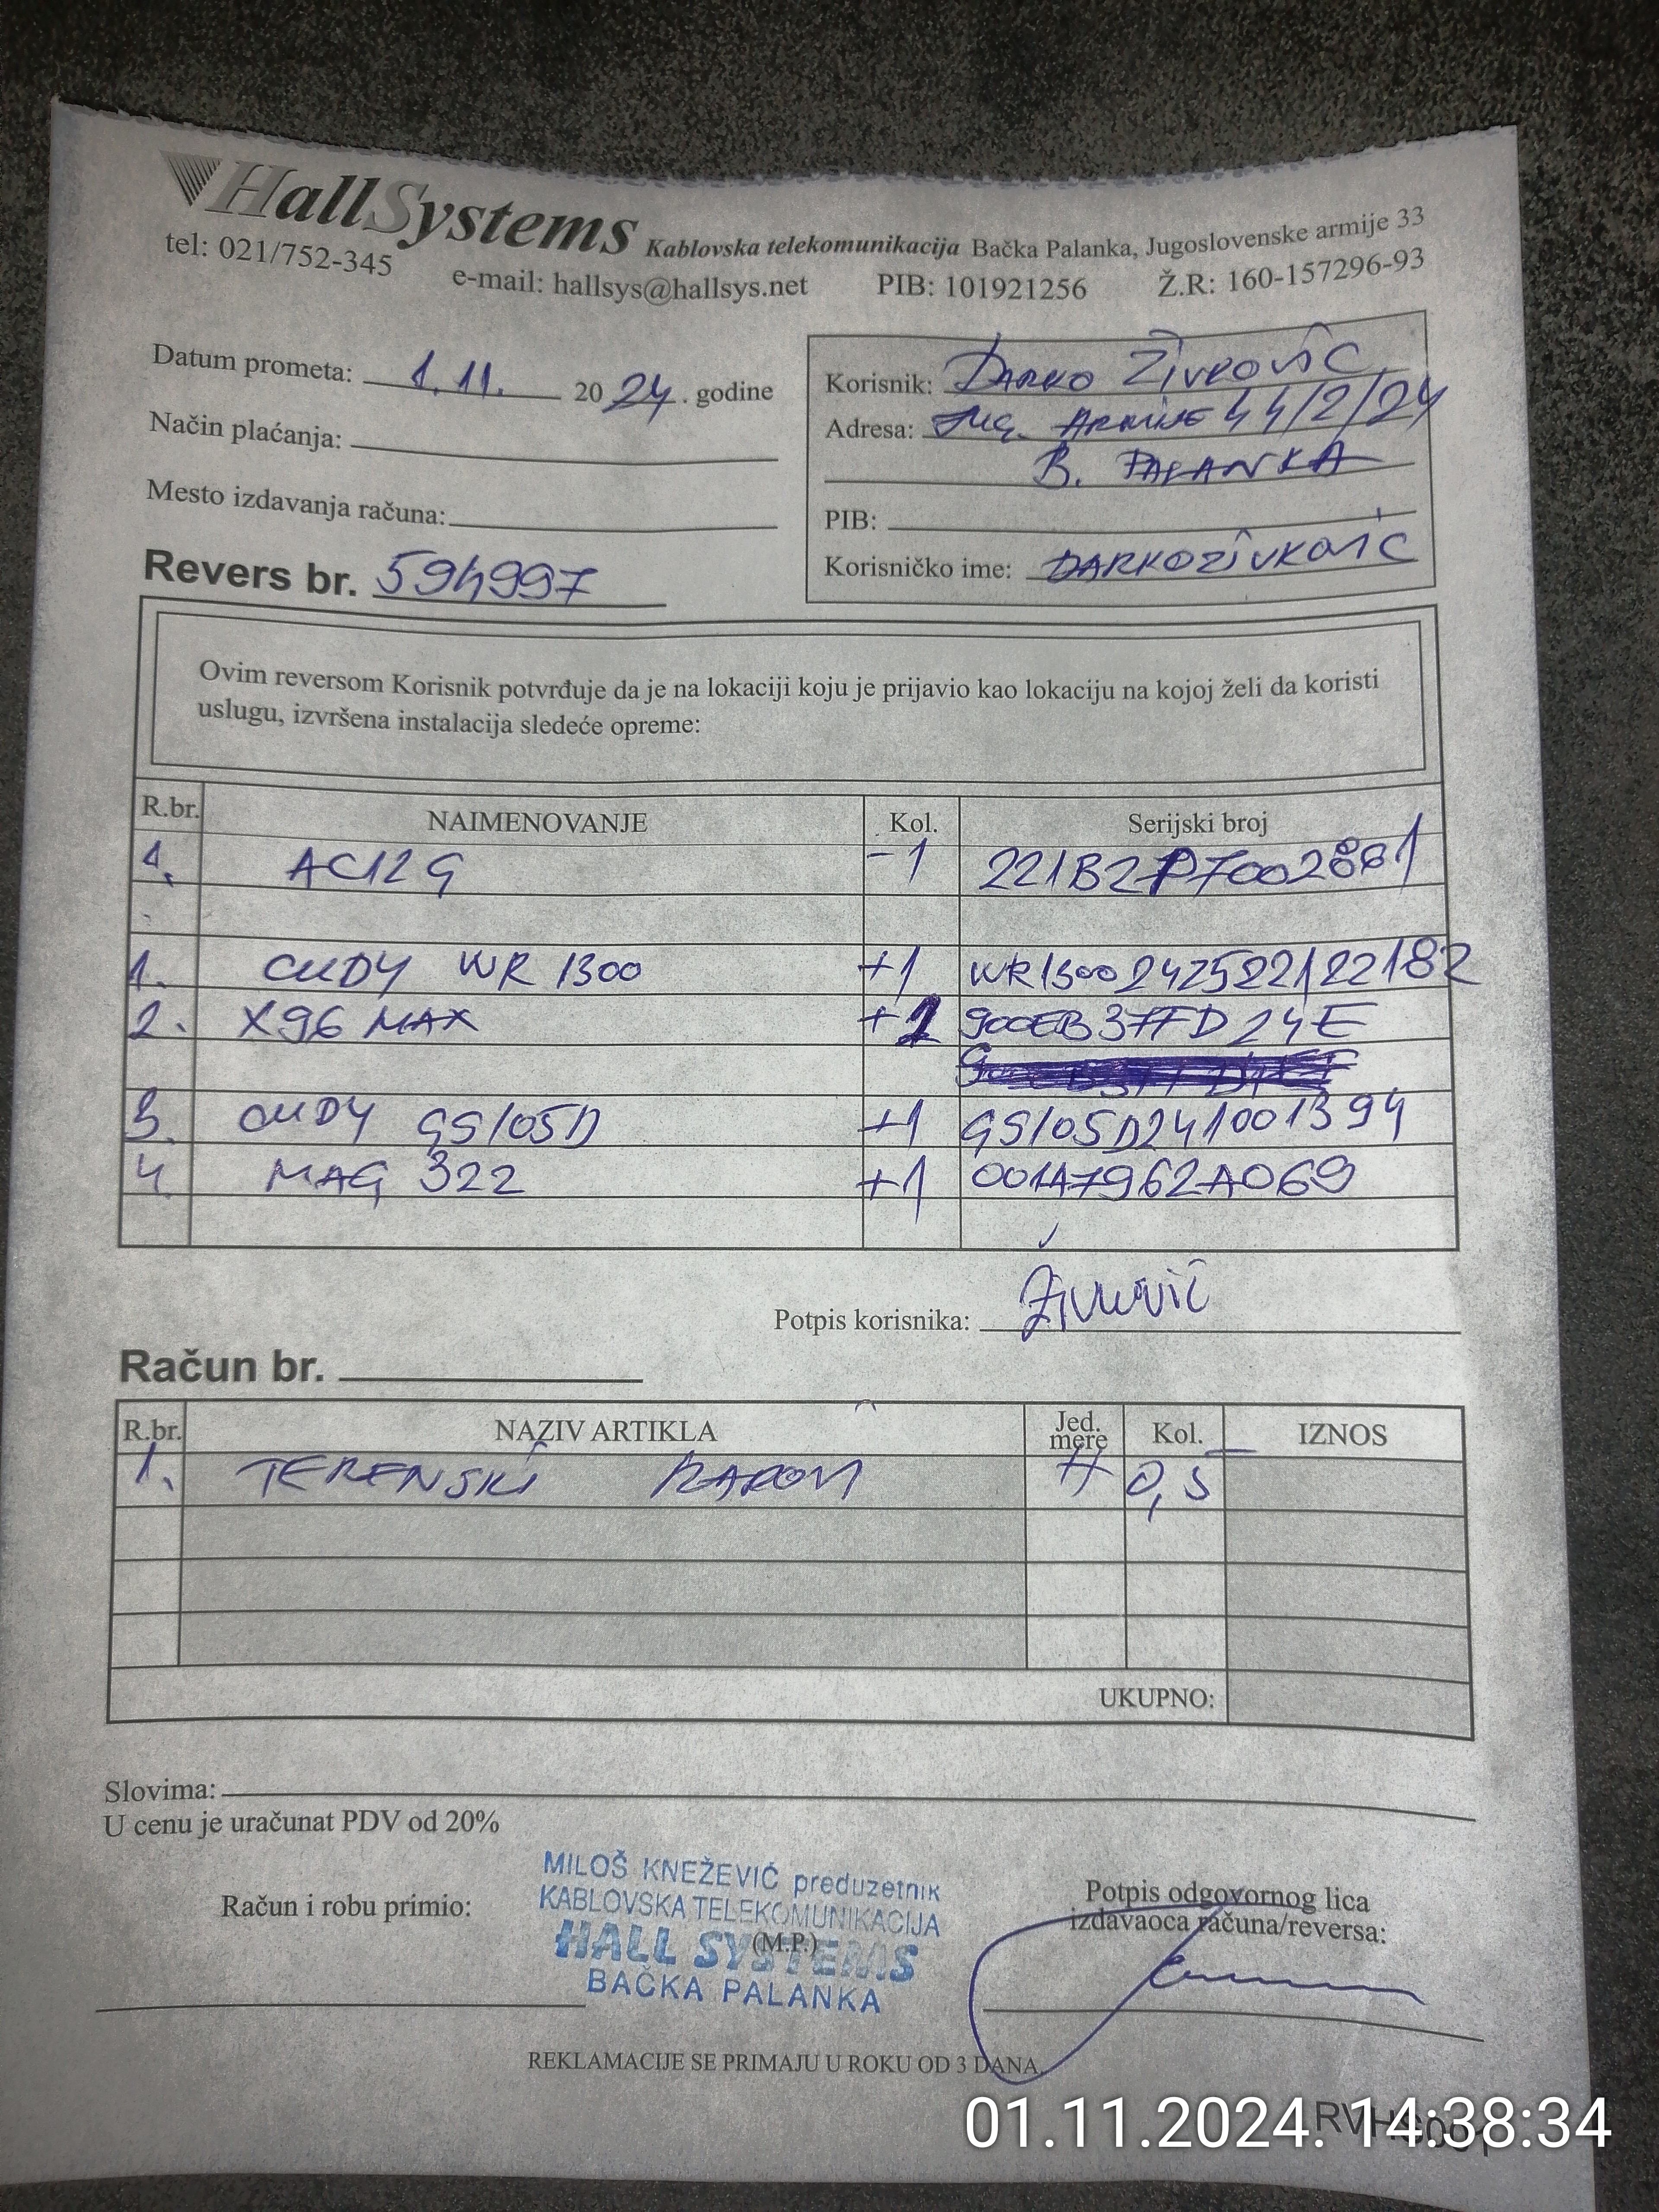 HallSystems Kablovska telekomunikacija Bačka Palanka, Jugoslovenske armije 33
tel: 021/752-345 e-mail: hallsys@hallsys.net PIB: 101921256 Ž.R: 160-157296-93
Datum prometa: 1.11. 2024. godine
Način plaćanja:
Mesto izdavanja računa:
Revers br. 594997
Korisnik: DARKO ŽIVKOVIĆ
Adresa: JUG. ARMIJE 44/2/24
B. PALANKA
PIB:
Korisničko ime: DARKOZIVKOVIC
Ovim reversom Korisnik potvrđuje da je na lokaciji koju je prijavio kao lokaciju na kojoj želi da koristi
uslugu, izvršena instalacija sledeće opreme:
R.br. NAIMENOVANJE Kol. Serijski broj
1. AC12G -1 221B2P7002861
1. CUDY WR 1300 +1 WR1300242522122182
2. X96 MAX +1 900EB37FD24E
3. CUDY GS105D +1 GS105D241001394
4 MAG 322 +1 001A7962A069
Potpis korisnika: Živković
Račun br.
R.br. NAZIV ARTIKLA Jed. mere Kol. IZNOS
1. TERENSKI RADOVI H 0,5
UKUPNO:
Slovima:
U cenu je uračunat PDV od 20%
Račun i robu primio:
MILOŠ KNEŽEVIĆ preduzetnik
KABLOVSKA TELEKOMUNIKACIJA
(M.P.)
HALL SYSTEMS
BAČKA PALANKA
Potpis odgovornog lica
izdavaoca računa/reversa:
REKLAMACIJE SE PRIMAJU U ROKU OD 3 DANA.
01.11.2024. 14:38:34